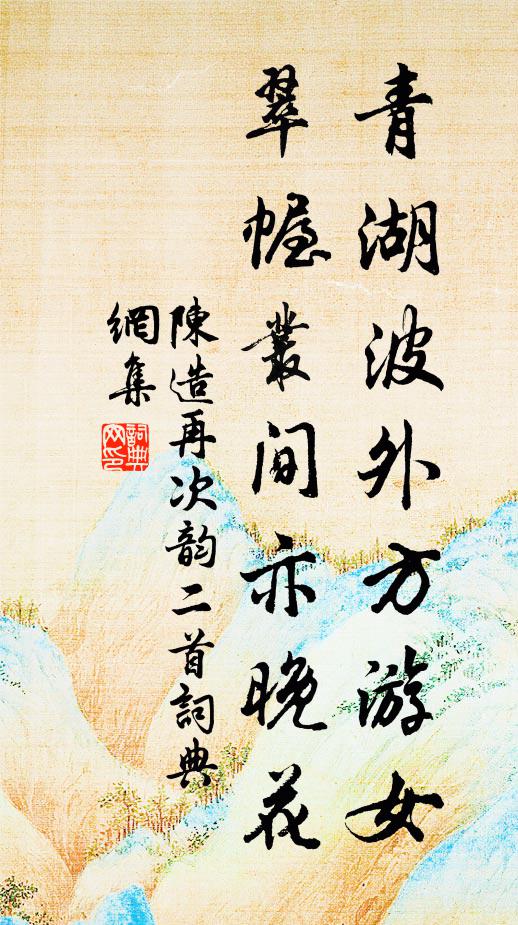 青湖波外方游女
翠幄叢間亦晚花
陳造再次韵二首詞典
網集
詞典
网印